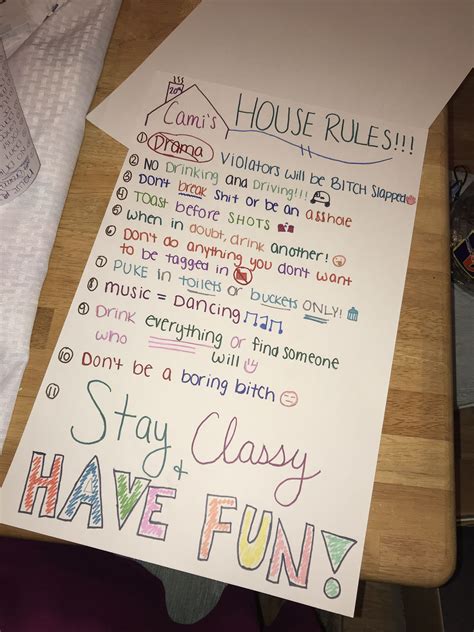 Cami's HOUSE RULES!!!
① Drama Violators will be BITCH Slapped
② NO Drinking and Driving!!!
③ Don't break shit or be an asshole
④ TOAST before SHOTS
⑤ when in doubt, drink another!
⑥ Don't do anything you don't want
to be tagged in
⑦ PUKE in toilets or buckets ONLY!
⑧ music = Dancing
⑨ Drink everything or find someone
who will
⑩ Don't be a boring bitch
⑪ Stay Classy
+
HAVE FUN!